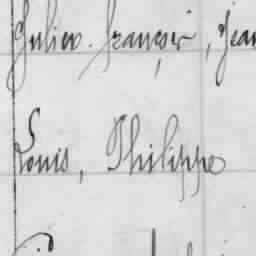 Julien. françois, Jean
Louis, Philippe